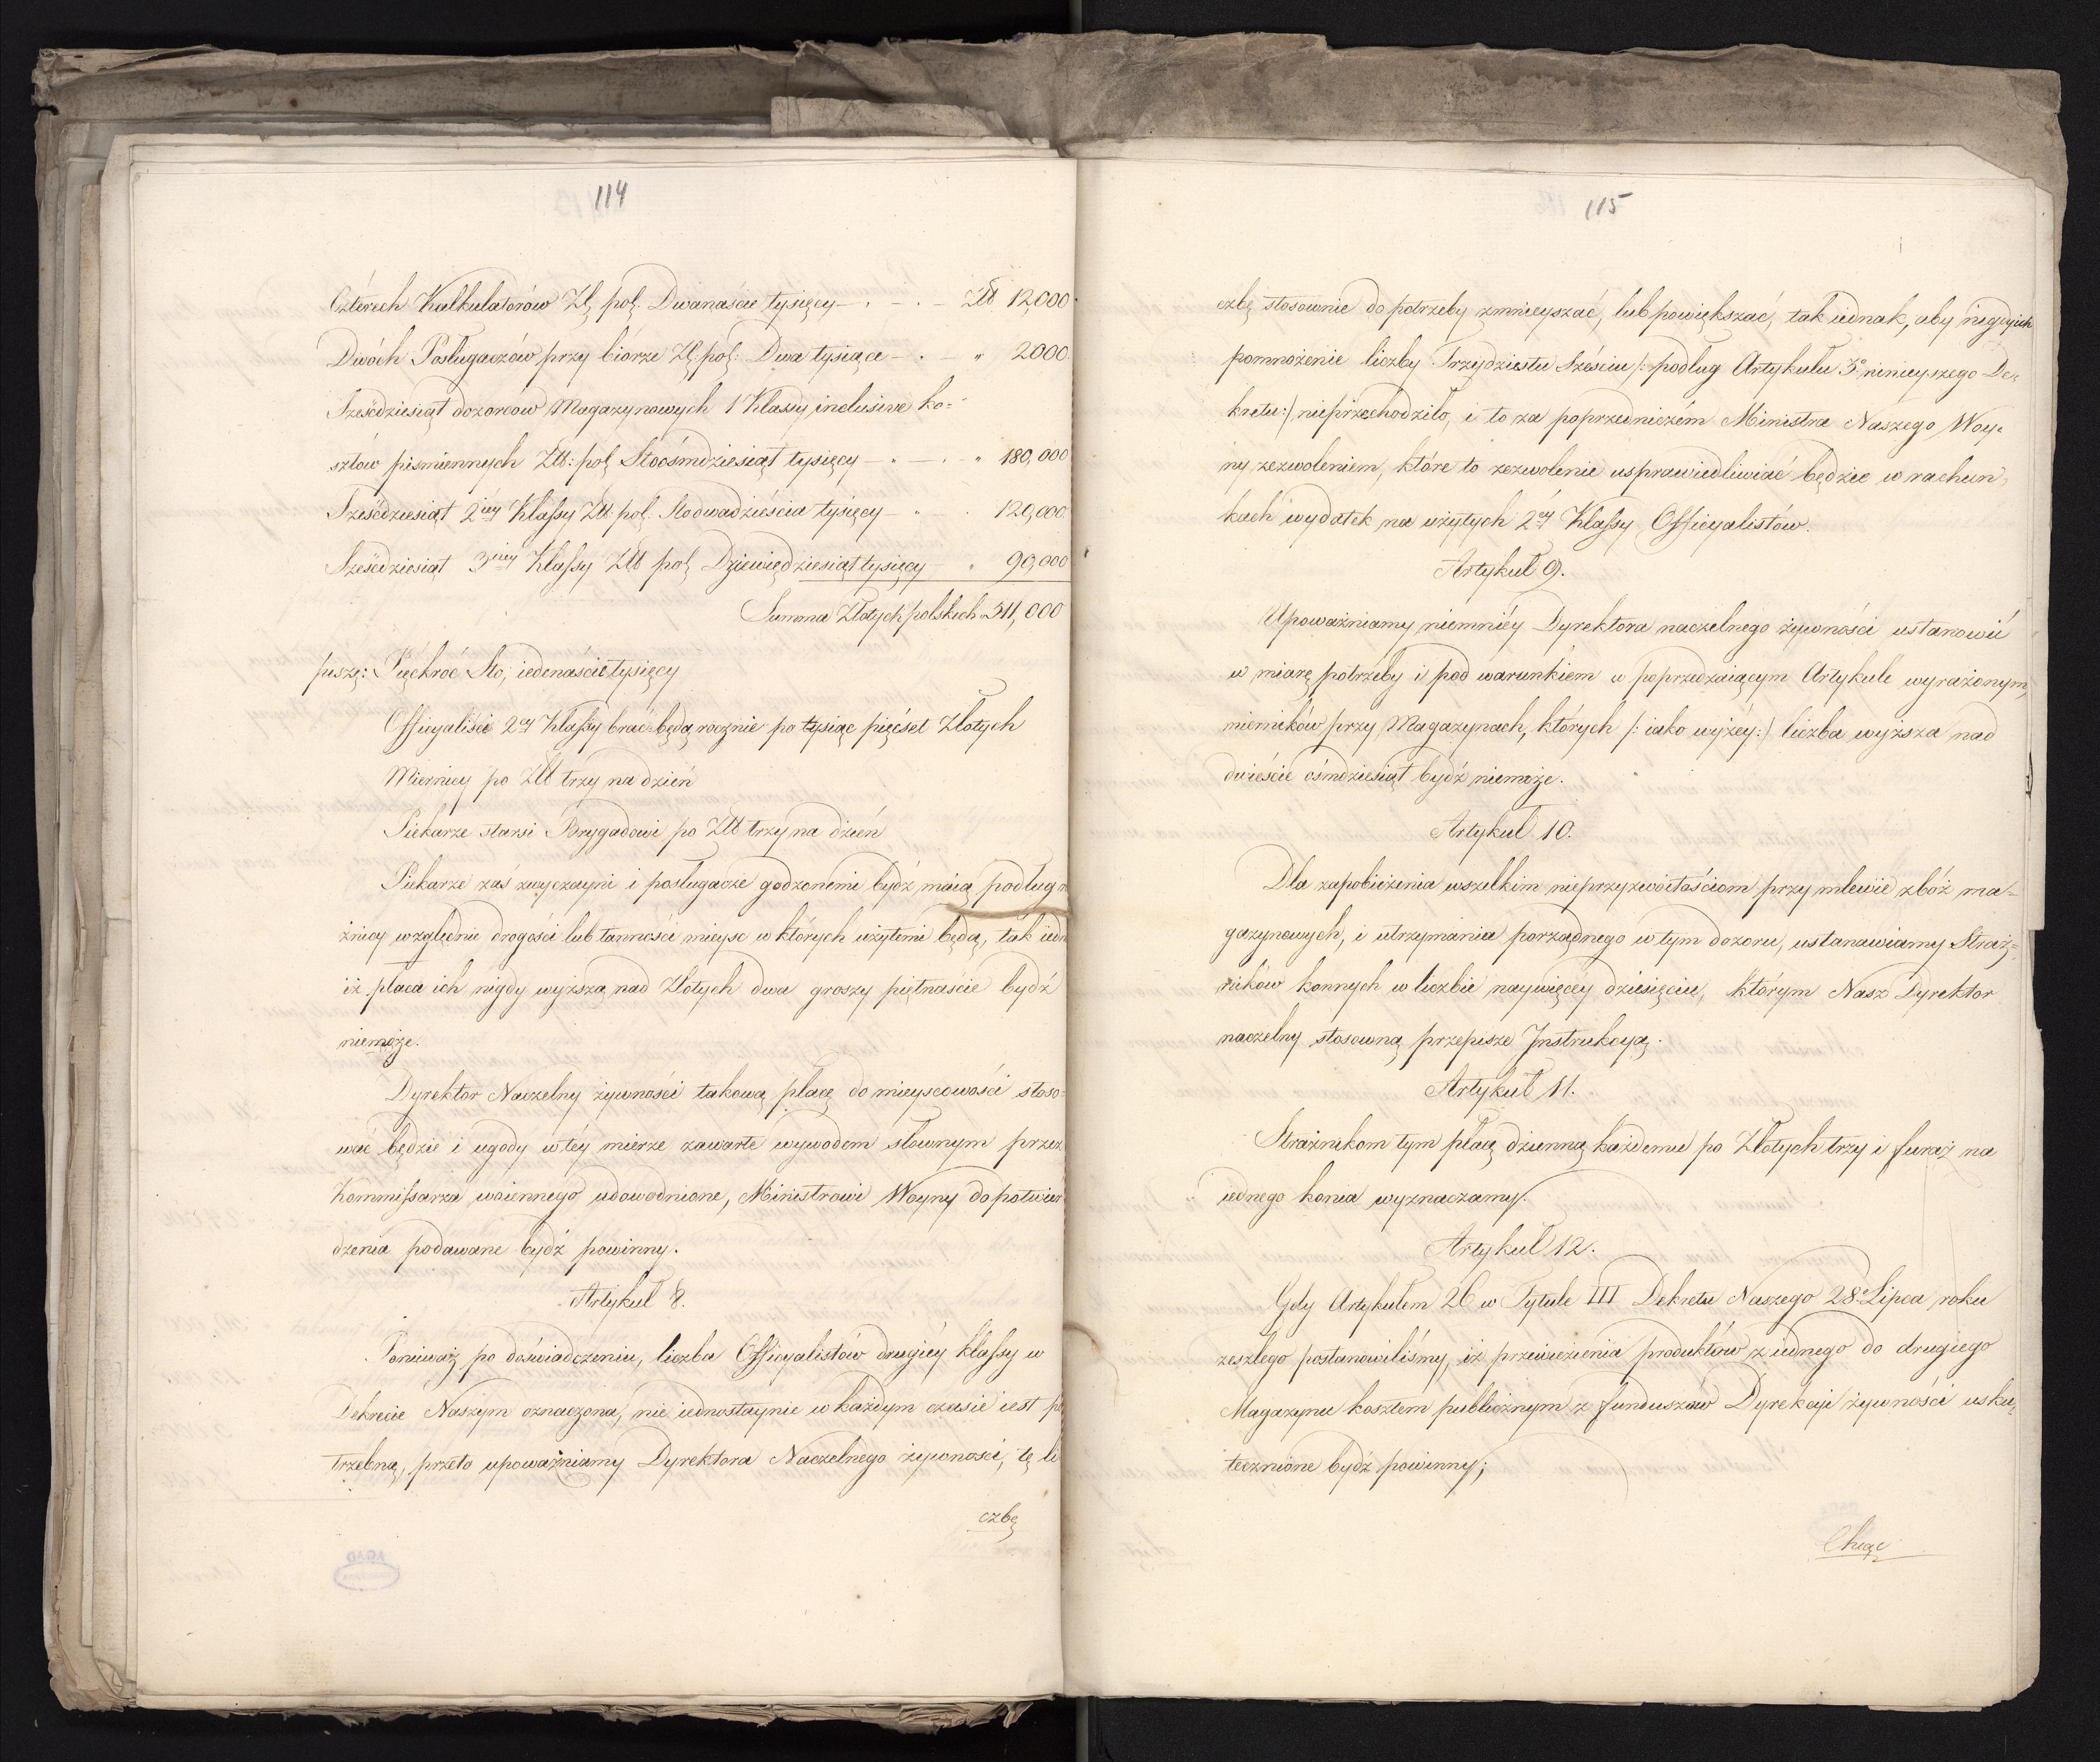 114
Czterech Kalkulatorów Zł. pol. Dwanaście tysięcy — . — . — Złł 12,000
Dwóch Posługaczów przy biórze Zł: pol: Dwa tysiące — . — " 2000.
Sześćdziesiąt dozorców Magazynowych 1 Klassy, inclusive ko=
sztów pismiennych Złł: pol. Stoośmdziesiąt tysięcy — . — . " 180,000
Sześćdziesiąt 2iey Klassy Złł. pol. Stodwadzieścia tysięcy — " . 120,000.
Sześćdziesiąt 3iey Klassy Złł pol. Dziewięćdziesiąt tysięcy — " 90,000
Summa Złotych polskich 511,000
piszę: Pięćkroć Sto, iedenaście tysięcy
Officyaliści 2ey Klassy brać będą rocznie po tysiąc pięćset Złotych
Miernicy po Złł trzy na dzień
Piekarze starsi Brygadowi po Złł trzy na dzień
Piekarze zaś zwyczayni i posługacze godzonemi bydź maią podług
żnicy względnie drogości lub tanności mieysc w których użytemi będą, tak iedn
iż płaca ich nigdy wyższą nad Złotych dwa groszy piętnaście bydź
niemoże.
Dyrektor Naczelny żywności takową płacę do mieyscowości stoso=
wać będzie i ugody w tey mierze zawarte wywodem słownym przez
Kommissarza woiennego udowodnione, Ministrowi Woyny do potwier
dzenia podawane bydź powinny.
Artykuł 8.
Ponieważ po doświadczeniu, liczba Officyalistów drugiéy klassy w
Dekrecie Naszym oznaczona, nie iednostaynie w każdym czasie iest po
trzebną, przeto upoważniamy Dyrektora Naczelnego żywności, tę li
czbę
115
czbę stosownie do potrzeby zmnieyszać, lub powiększać, tak iednak, aby nigdy ich
pomnożenie liczby Trzydziestu Sześciu /: podług Artykułu 3o ninieyszego De=
kretu :/ nieprzechodziło, i to za poprzedniczém Ministra Naszego Woy=
ny zezwoleniem, które to zezwolenie usprawiedliwiać będzie w rachun=
kach wydatek na użytych 2ey Klassy Officyalistów.
Artykuł 9.
Upoważniamy niemniéy Dyrektora naczelnego żywności ustanowić
w miarę potrzeby i pod warunkiem w poprzedzaiącym Artykule wyrażonym,
mierników przy Magazynach, których /: iako wyżéy :/ liczba wyższa nad
dwieście ośmdziesiąt bydź niemoże.
Artykuł 10.
Dla zapobieżenia wszelkim nieprzyzwoitościom przy mlewie zbóż ma=
gazynowych, i utrzymania porządnego w tym dozoru, ustanawiamy Straż=
ników konnych w liczbie naywięcéy dziesięciu, którym Nasz Dyrektor
naczelny stosowną przepisze Instrukcyą.
Artykuł 11.
Strażnikom tym płacę dzienną każdemu po Złotych trzy i furaż na
iednego konia wyznaczamy.
Artykuł 12.
Gdy Artykułem 26 w Tytule III Dekretu Naszego 28o Lipca roku
zeszłego postanowiliśmy, iż przewiezienia produktów z iednego do drugiego
Magazynu kosztem publicznym z funduszów Dyrekcyi żywności usku=
tecznione bydź powinny;
Chcąc
AGAD